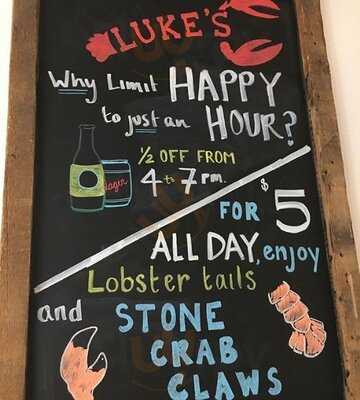 LUKE'S
Why Limit HAPPY
to just an HOUR?
1/2 OFF FROM
4 to 7 pm.
lager
FOR $5
ALL DAY, enjoy
Lobster tails
and STONE
CRAB
CLAWS